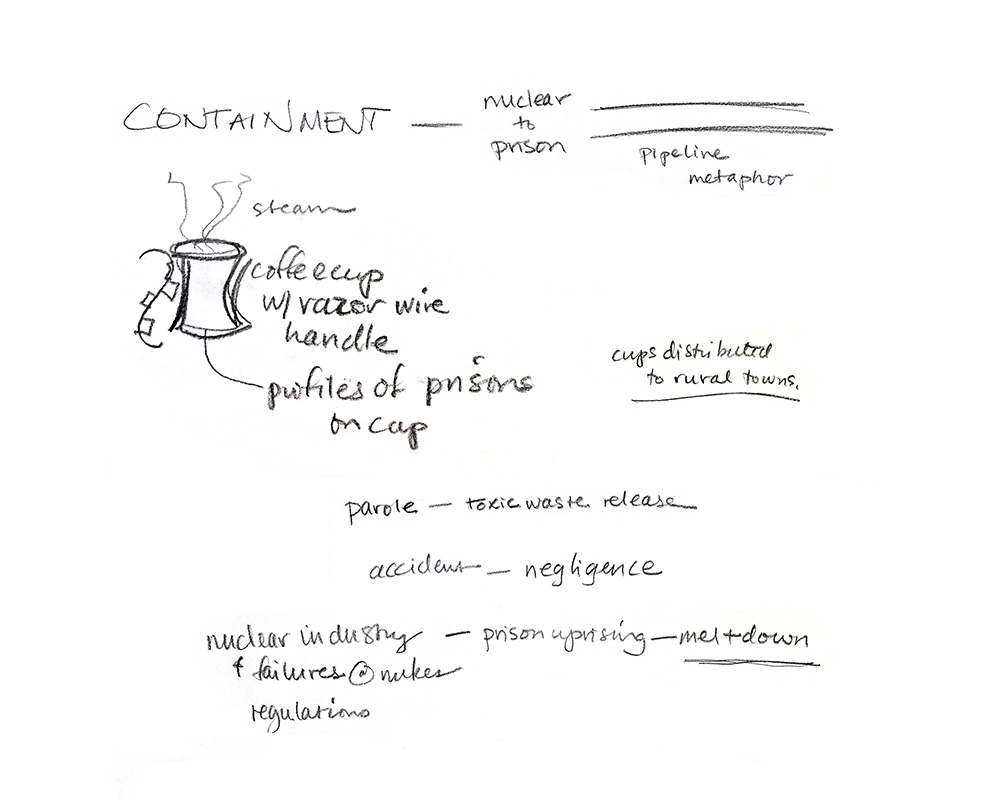 CONTAINMENT — nuclear
to
prison
pipeline
metaphor
steam
coffeecup
w/ razor wire
handle
profiles of prisons
on cap
cups distributed
to rural towns.
parole — toxic waste release
accident — negligence
nuclear industry — prison uprising — meltdown
& failures @ nukes
regulations